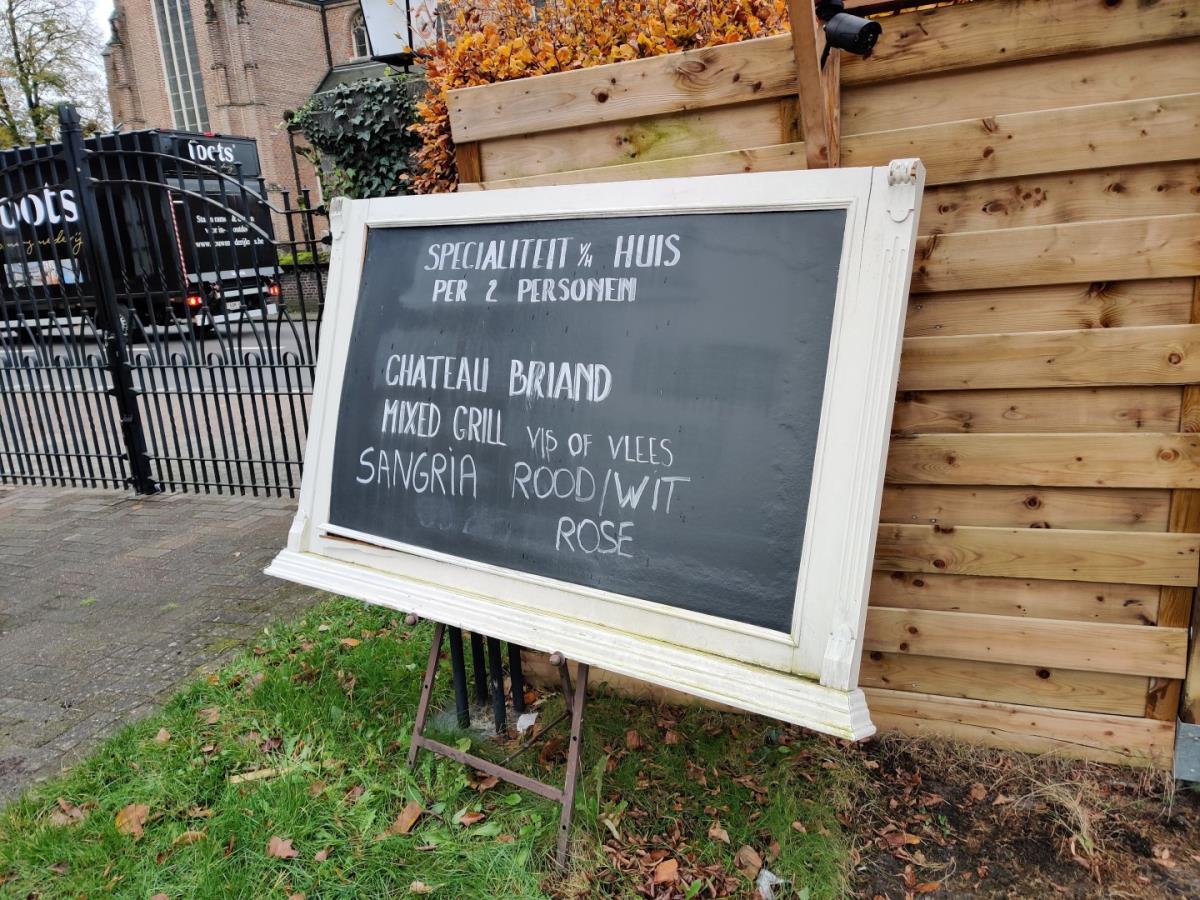 SPECIALITEIT V/H HUIS
PER 2 PERSONEN
CHATEAU BRIAND
MIXED GRILL VIS OF VLEES
SANGRIA ROOD/WIT
ROSE